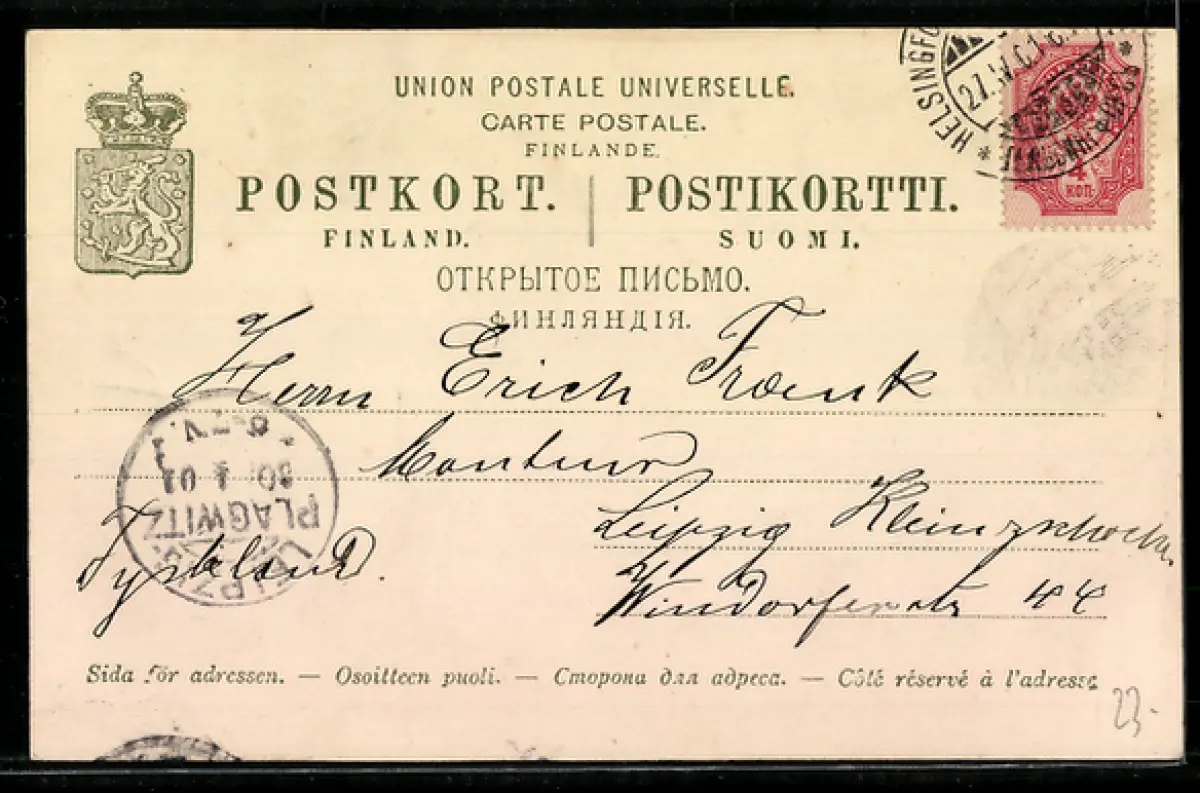 UNION POSTALE UNIVERSELLE.
CARTE POSTALE.
FINLANDE.
POSTKORT. | POSTIKORTTI.
FINLAND. SUOMI.
ОТКРЫТОЕ ПИСЬМО.
ФИНЛЯНДІЯ.
HELSINGFO
27.IV.01
4
КОП.
Herrn Erich Fraenk
Monteur
Leipzig Kleinzschocher
Windorferstr 44
Tyskland.
6-7V.
30 4 01
PLAGWITZ
LEIPZIG
Sida för adressen. — Osoitteen puoli. — Сторона для адреса. — Côté réservé à l'adresse
23.-